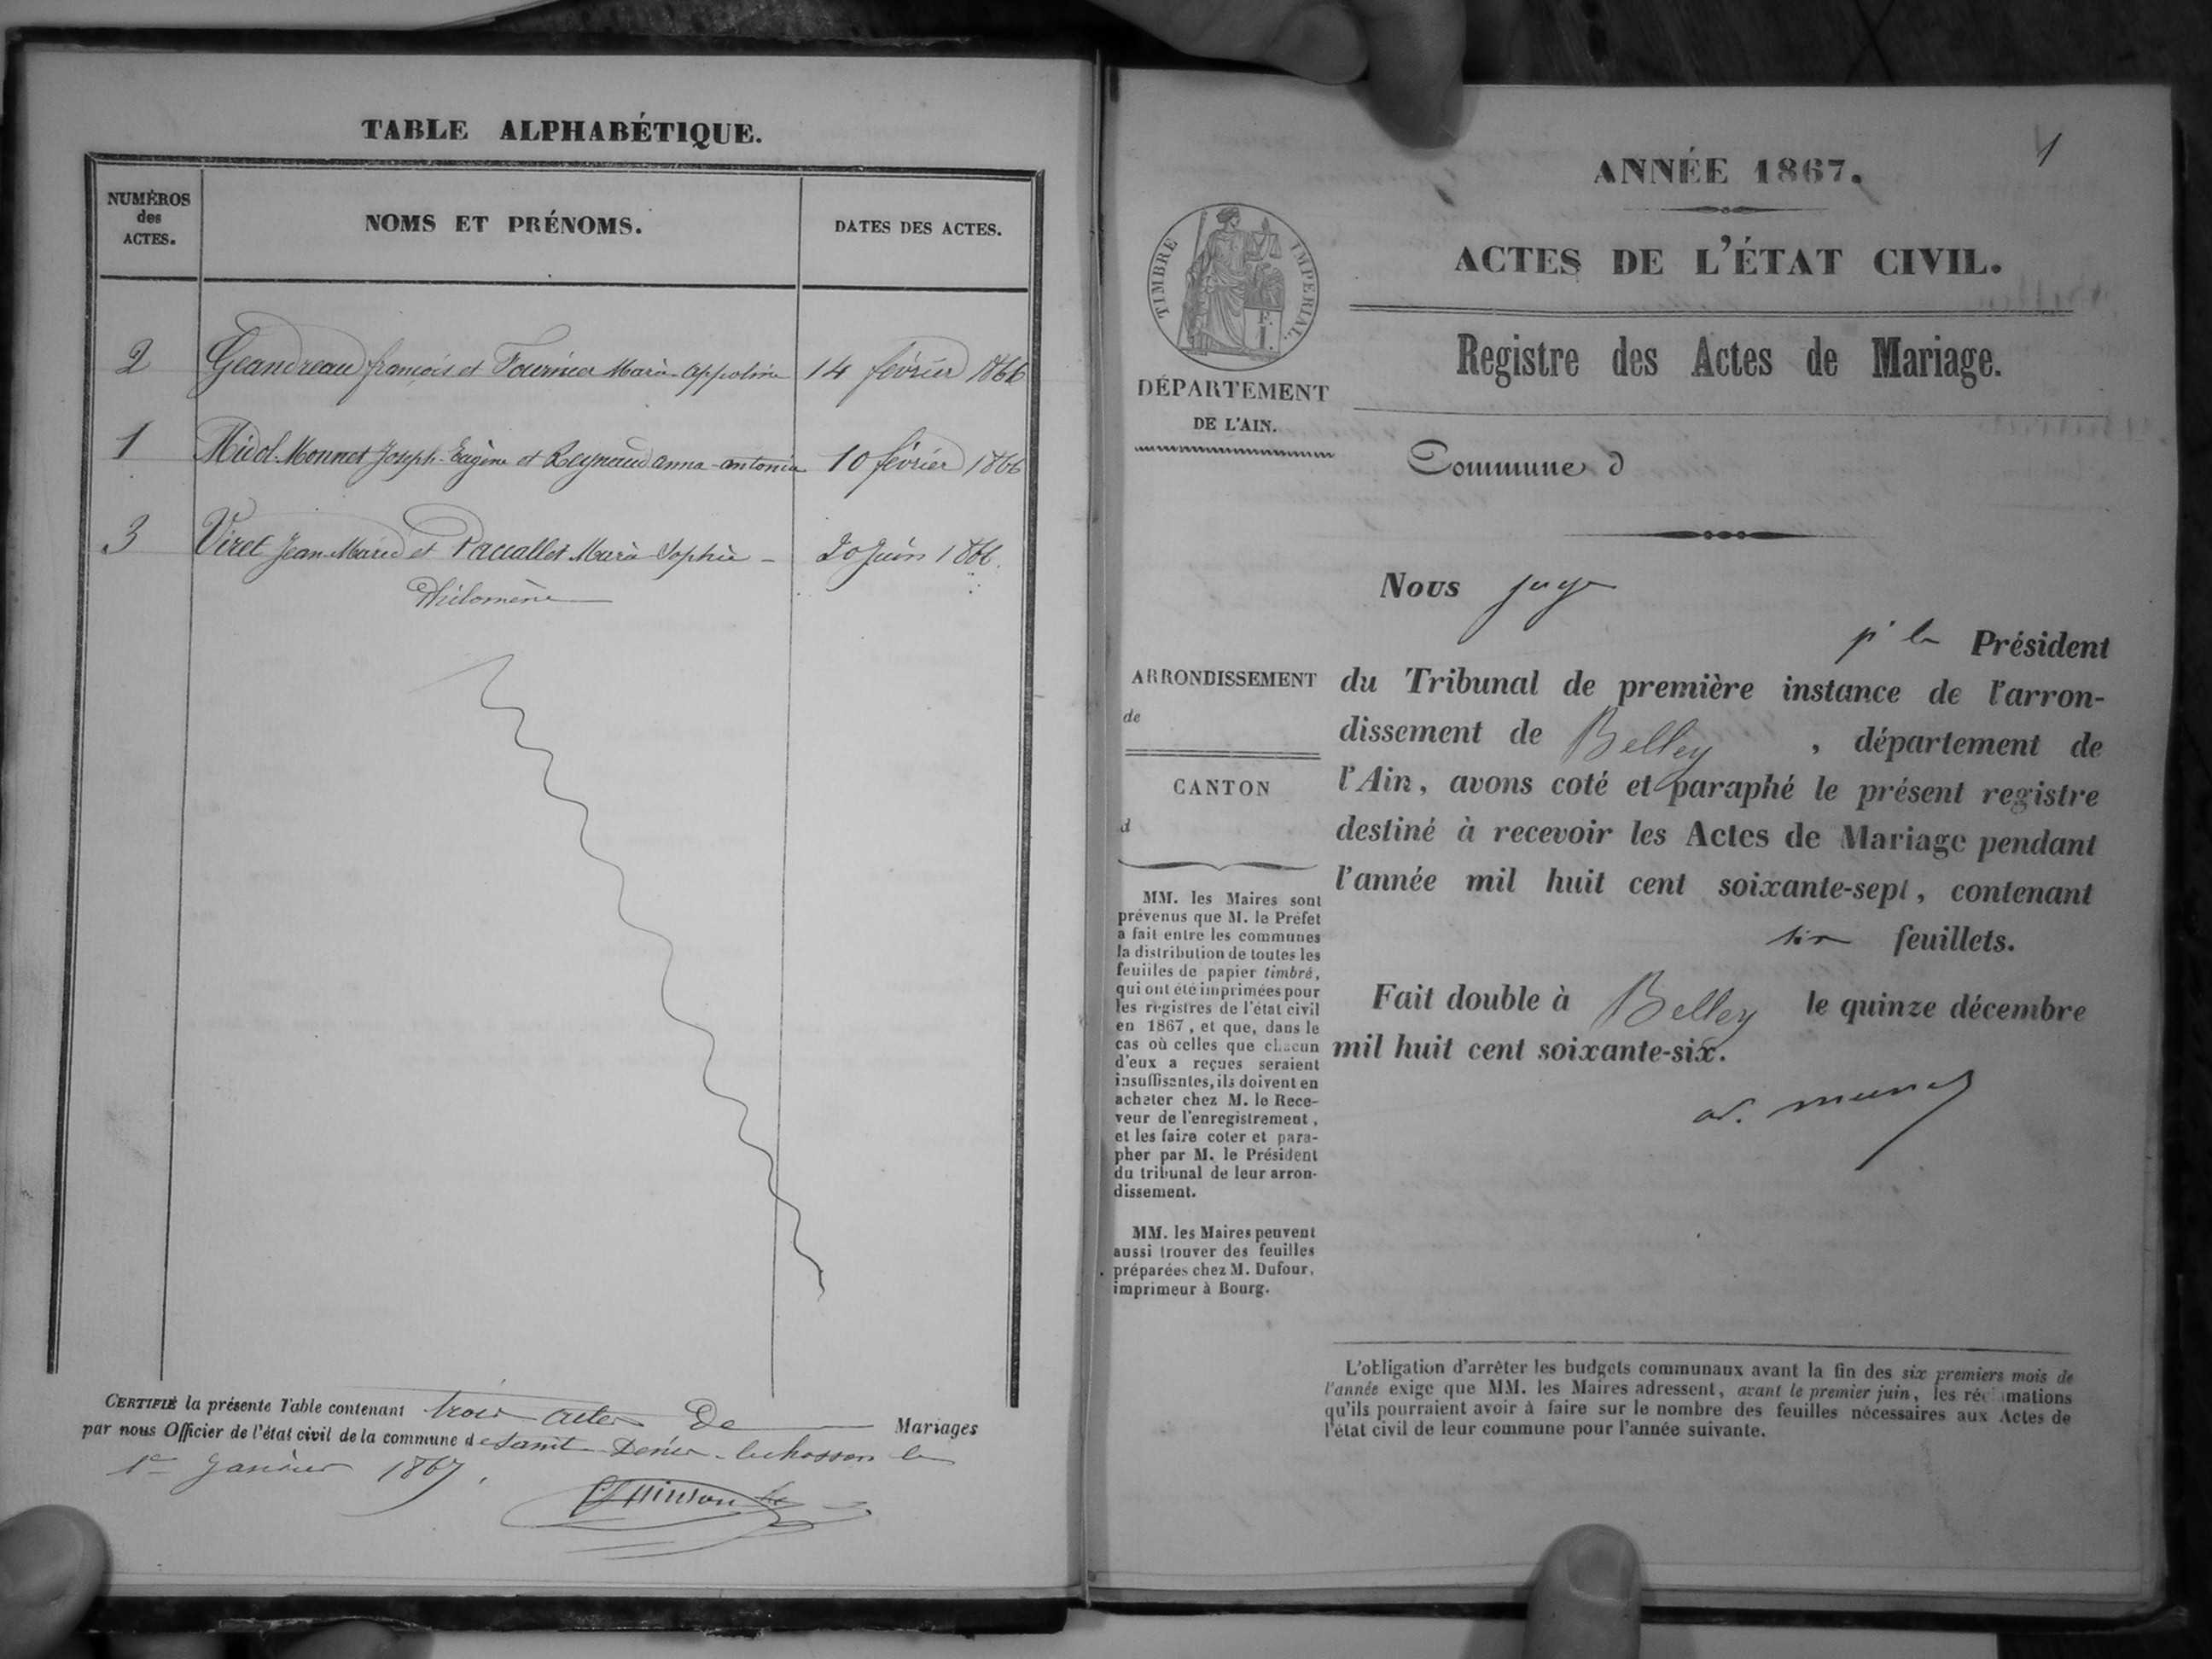 TABLE ALPHABÉTIQUE.
NUMÉROS
des
ACTES.
NOMS ET PRÉNOMS.
DATES DES ACTES.
2 Geandreau françois et Fournier Marie Appoline 14 février 1866
1 Midol-Monnet Joseph-Eugène et Reynaud anna-antonia 10 février 1866
3 Viret Jean-Marie et Paccallet Marie Sophie - 20 Juin 1866.
Philomène
CERTIFIÉ la présente Table contenant trois actes De Mariages
par nous Officier de l'état civil de la commune de Saint-Denis-le chosson le
1er Janvier 1867.
ANNÉE 1867.
1
ACTES DE L'ÉTAT CIVIL.
TIMBRE IMPERIAL.
Registre des Actes de Mariage.
DÉPARTEMENT
DE L'AIN.
Commune d
Nous juge
pr le Président
du Tribunal de première instance de l'arron-
dissement de Belley , département de
l'Ain, avons coté et paraphé le présent registre
destiné à recevoir les Actes de Mariage pendant
l'année mil huit cent soixante-sept, contenant
six feuillets.
Fait double à Belley le quinze décembre
mil huit cent soixante-six.
ARRONDISSEMENT
de
CANTON
d
MM. les Maires sont
prévenus que M. le Préfet
a fait entre les communes
la distribution de toutes les
feuilles de papier timbré,
qui ont été imprimées pour
les registres de l'état civil
en 1867, et que, dans le
cas où celles que chacun
d'eux a reçues seraient
insuffisantes, ils doivent en
acheter chez M. le Rece-
veur de l'enregistrement,
et les faire coter et para-
pher par M. le Président
du tribunal de leur arron-
dissement.
MM. les Maires peuvent
aussi trouver des feuilles
préparées chez M. Dufour,
imprimeur à Bourg.
L'obligation d'arrêter les budgets communaux avant la fin des six premiers mois de
l'année exige que MM. les Maires adressent, avant le premier juin, les réclamations
qu'ils pourraient avoir à faire sur le nombre des feuilles nécessaires aux Actes de
l'état civil de leur commune pour l'année suivante.